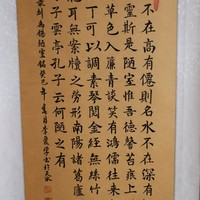 不在高有僊則名水不在深有
靈斯是陋室惟吾德馨苔痕上
草色入簾青談笑有鴻儒往来
丁可以調素琴閱金經無絲竹
耳無案牘之勞形南陽諸葛廬
子雲亭孔子云何陋之有
劉禹錫陋室銘癸巳年夏月李